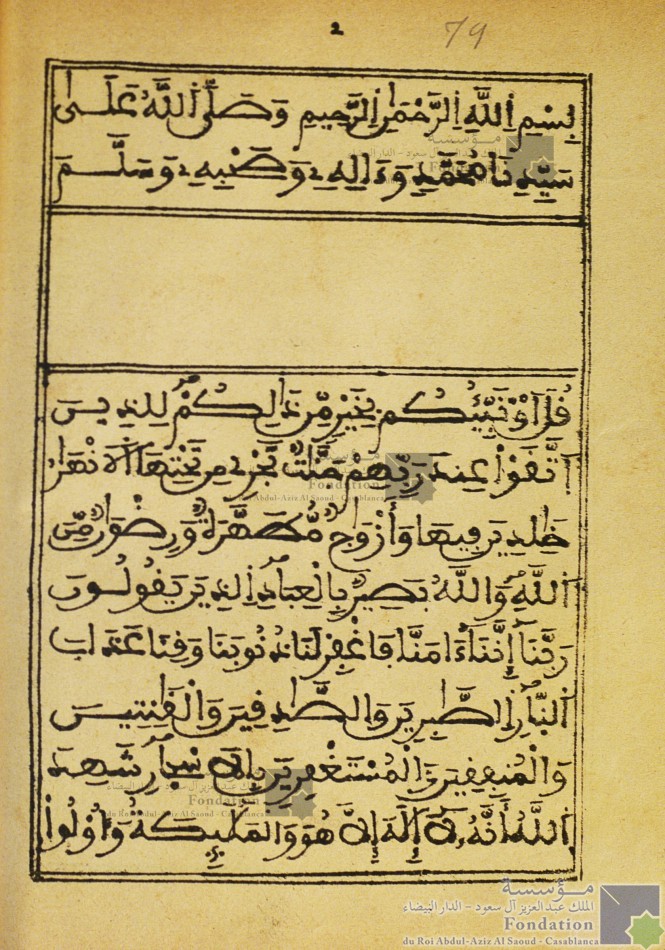 2
79
بِسْمِ اِ۬للَّهِ اِ۬لرَّحْمَٰنِ اِ۬لرَّحِيمِ وَصَلَّى اَ۬للَّهُ عَلَىٰ
سَيِّدِنَا مُحَمَّدٍ وَءَالِهِۦ وَصَحْبِهِۦ وَسَلَّمَ
قُلَ اَوْ۟نَبِّئُكُم بِخَيْرٖ مِّن ذَٰلِكُمْ لِلذِينَ
اَ۪تَّقَوْاْ عِندَ رَبِّهِمْ جَنَّٰتٞ تَجْرِے مِن تَحْتِهَا اَ۬لَانْهَٰرُ
خَٰلِدِينَ فِيهَا وَأَزْوَٰجٞ مُّطَهَّرَةٞ وَرِضْوَٰنٞ مِّنَ
اَ۬للَّهِ وَاللَّهُ بَصِيرُۢ بِالْعِبَادِ اِ۬لذِينَ يَقُولُونَ
رَبَّنَآ إِنَّنَآ ءَامَنَّا فَاغْفِرْ لَنَا ذُنُوبَنَا وَقِنَا عَذَابَ
اَ۬لنّ۪ارِ اِ۬لصَّٰبِرِينَ وَالصَّٰدِقِينَ وَالْقَٰنِتِينَ
وَالْمُنفِقِينَ وَالْمُسْتَغْفِرِينَ بِالَاسْح۪ارِ شَهِدَ
اَ۬للَّهُ أَنَّهُۥ لَآ إِلَٰهَ إِلَّا هُوَ وَالْمَلَٰٓئِكَةُ وَأُوْلُواْ
مؤسسة
الملك عبد العزيز آل سعود – الدار البيضاء
Fondation
du Roi Abdul-Aziz Al Saoud - Casablanca